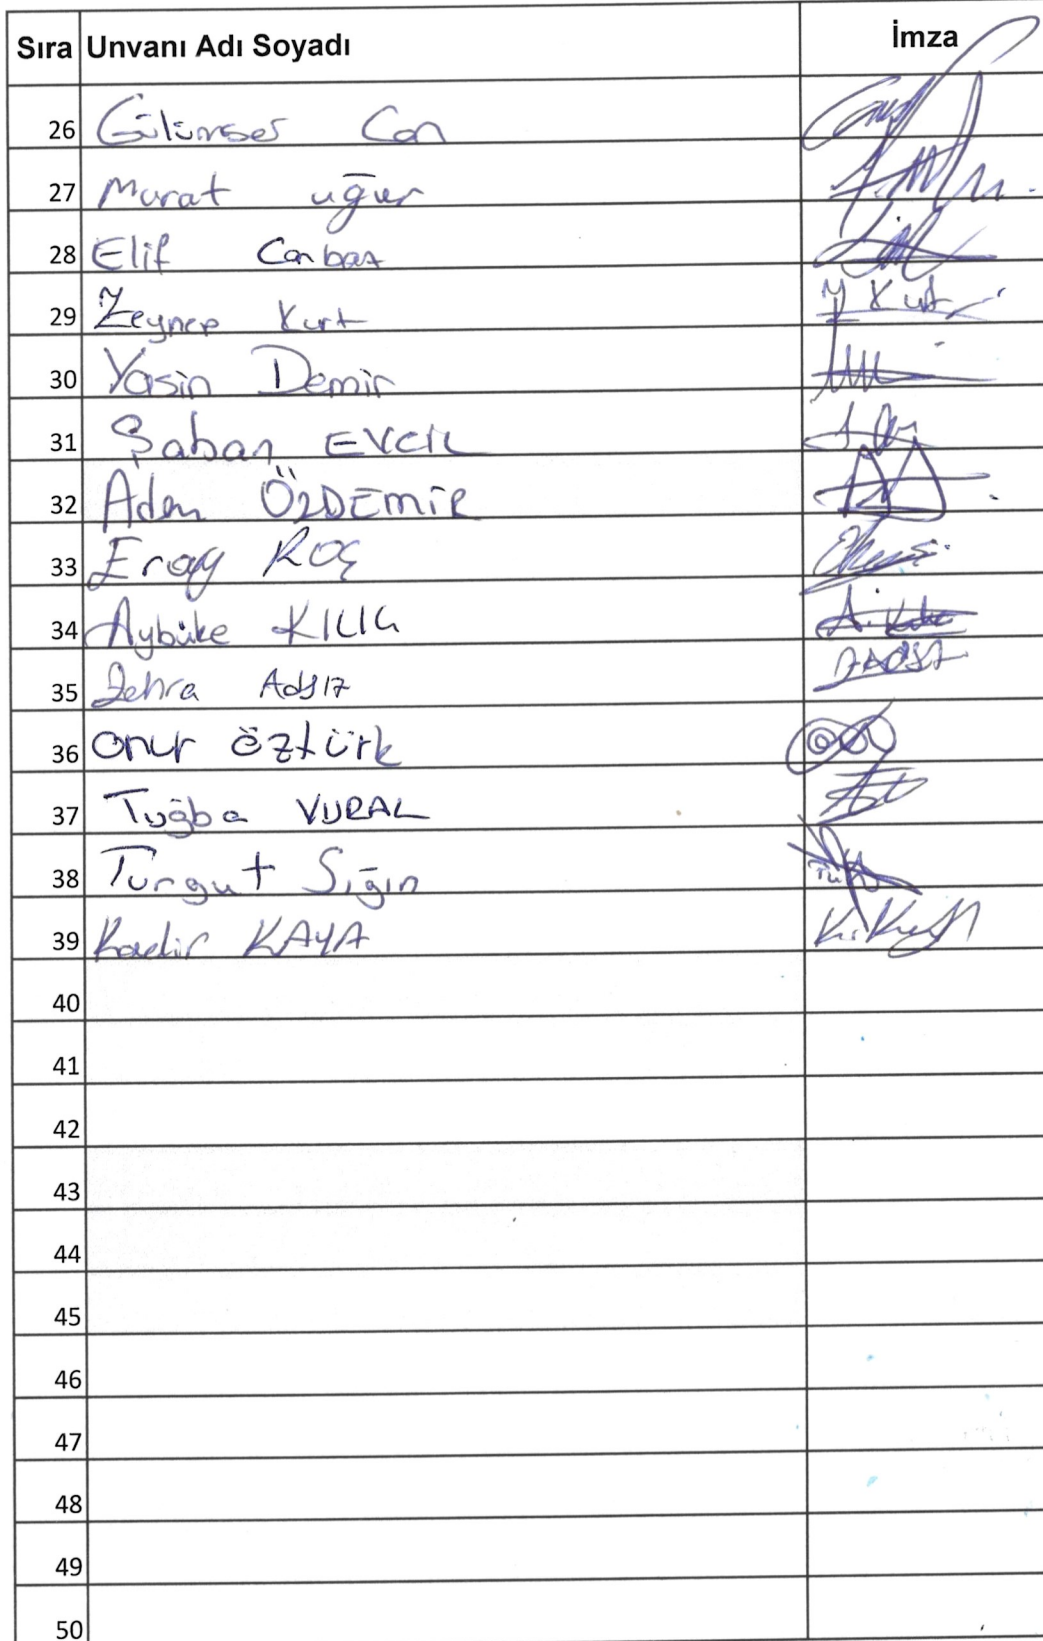 Sıra Unvanı Adı Soyadı İmza
26 Gülümser Can
27 Murat uğur
28 Elif Canbaz
29 Zeynep Kurt Z Kurt
30 Yasin Demir
31 Şaban EVCİL
32 Adem ÖZDEMİR
33 Eray KOÇ
34 Aybüke KILIÇ
35 Zehra Adsız
36 Onur Öztürk
37 Tuğba VURAL
38 Turgut Sığın
39 Kadir KAYA
40
41
42
43
44
45
46
47
48
49
50